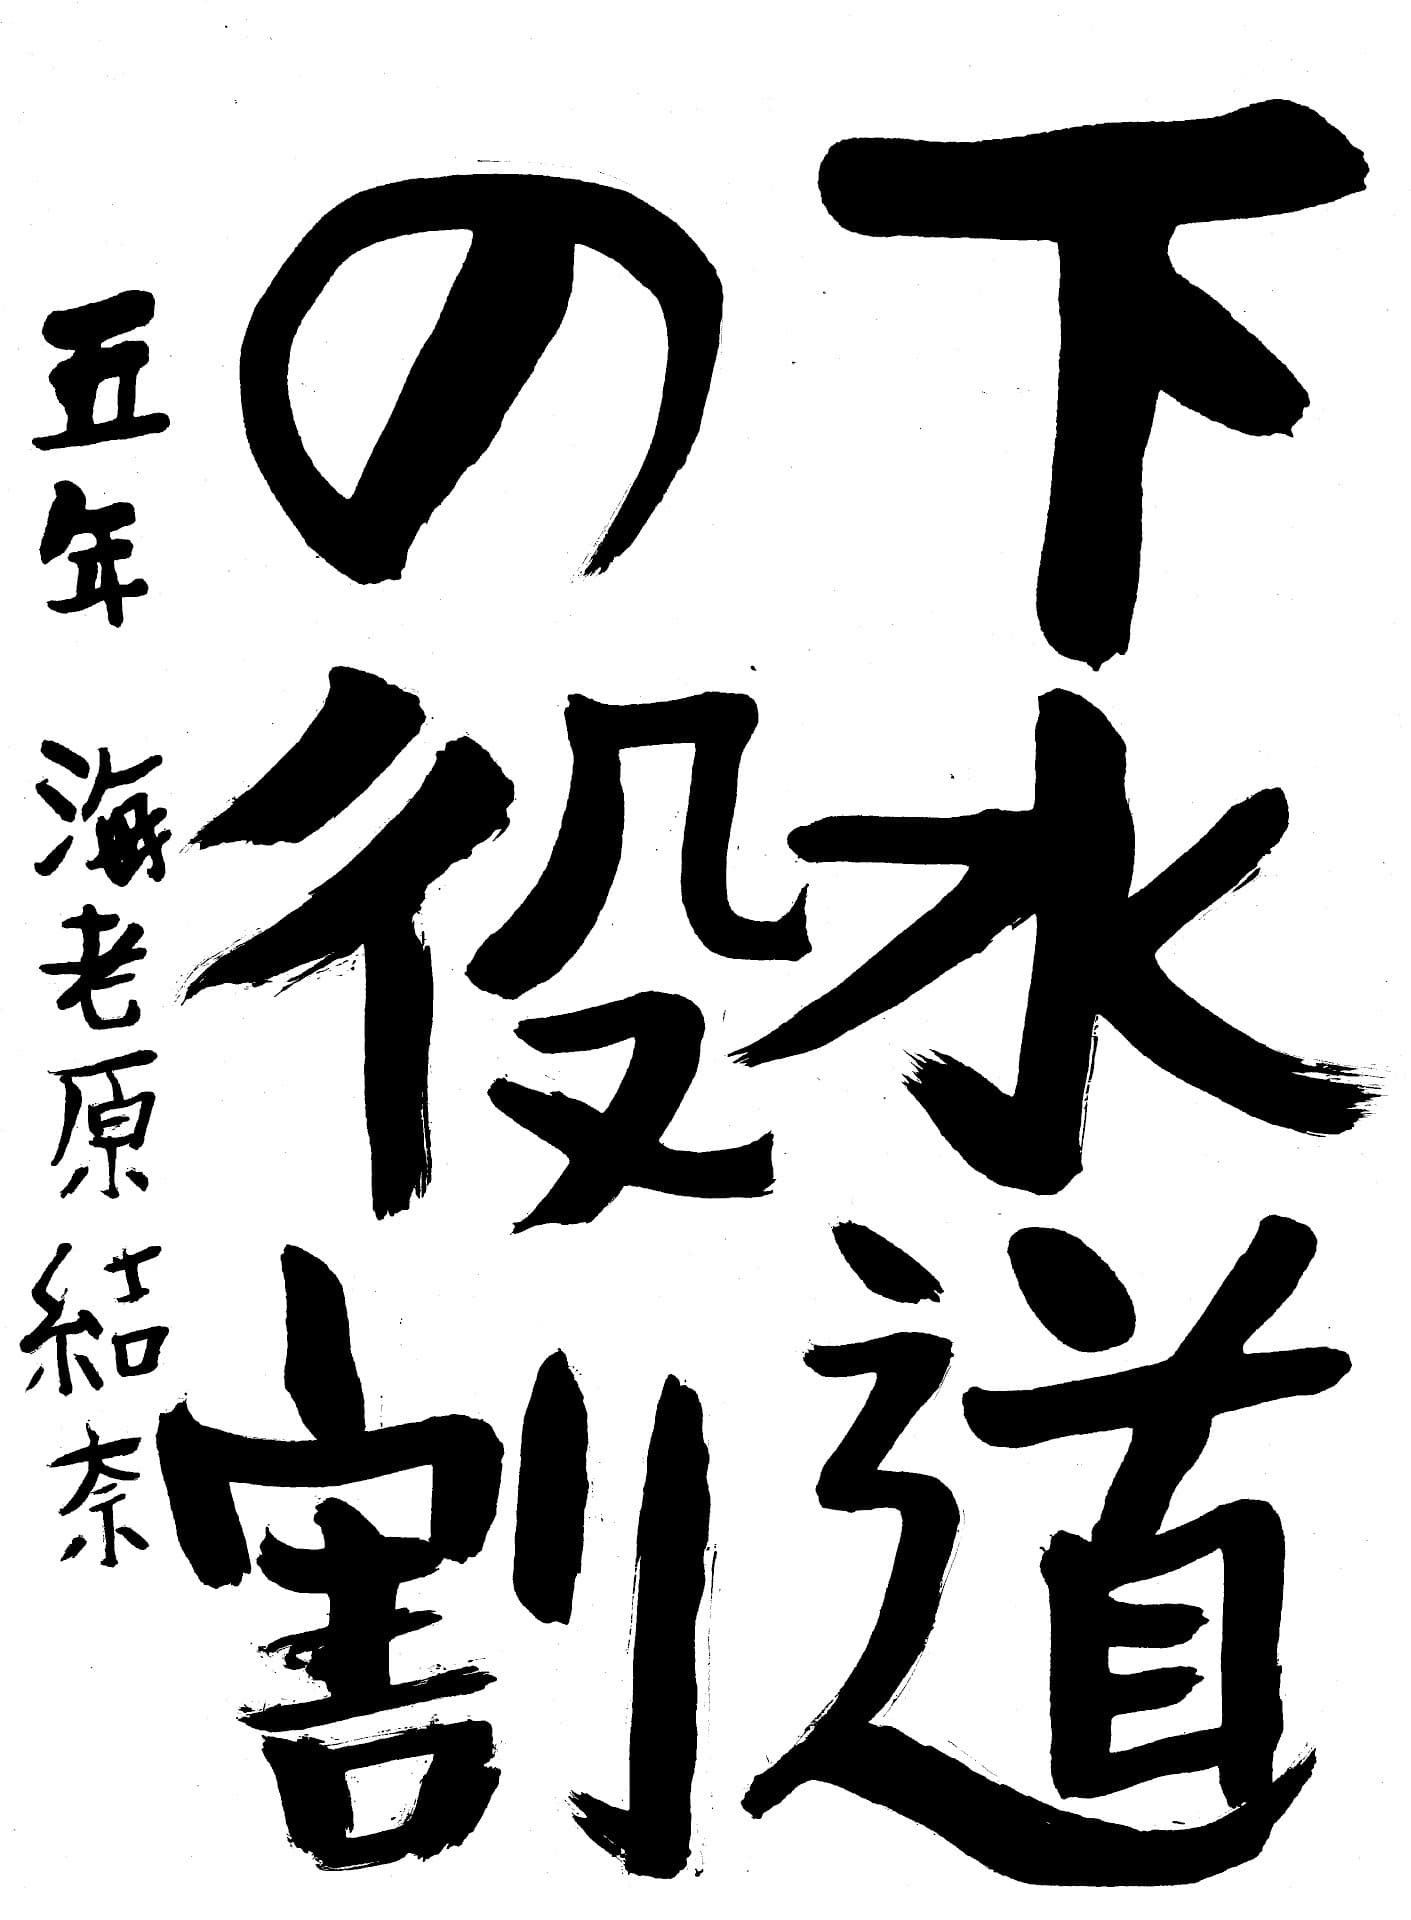 下水道
の役割
五年 海老原 結奈